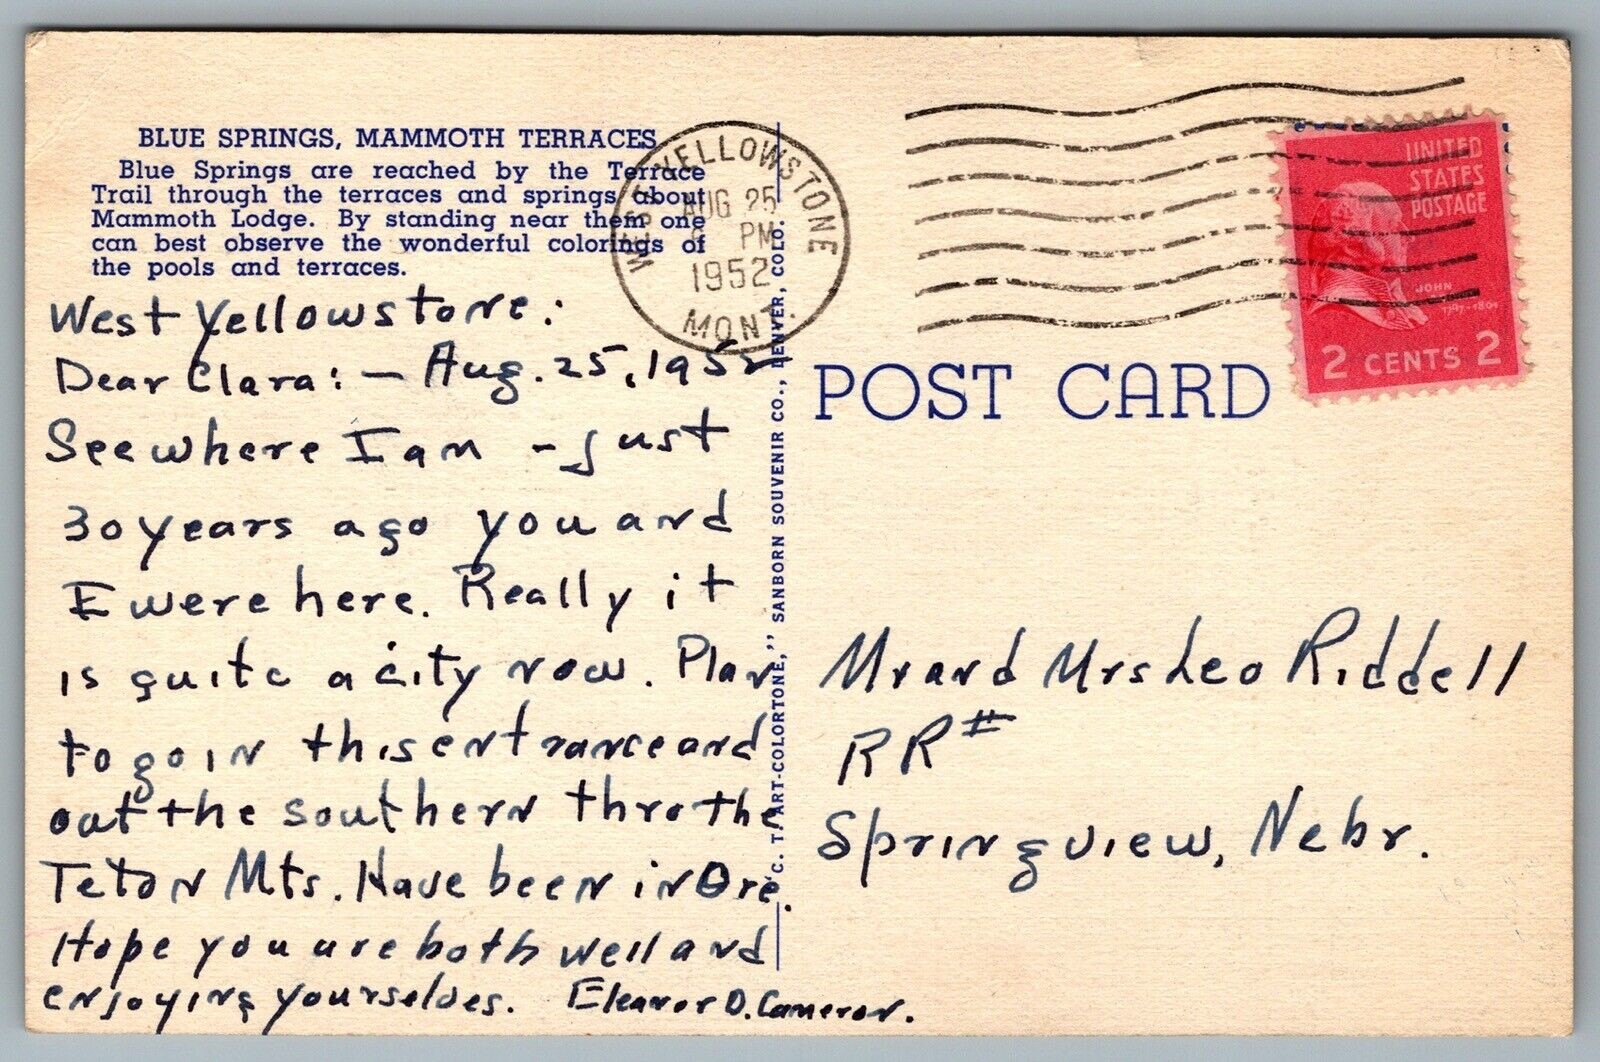 BLUE SPRINGS, MAMMOTH TERRACES
Blue Springs are reached by the Terrace
Trail through the terraces and springs about
Mammoth Lodge. By standing near them one
can best observe the wonderful colorings of
the pools and terraces.
West Yellowstone:
Dear Clara: – Aug. 25, 1952
See where I am – Just
30 years ago you and
I were here. Really it
is quite a city now. Plan
to go in this entrance and
out the southern thro the
Teton Mts. Have been in Ore.
Hope you are both well and
enjoying yourselves. Eleanor D. Cameron.
"C. T. ART-COLORTONE," SANBORN SOUVENIR CO., DENVER, COLO.
WEST YELLOWSTONE
AUG 25
PM
1952
MONT.
UNITED
STATES
POSTAGE
JOHN
1797-1801
2 CENTS 2
POST CARD
Mr and Mrs Leo Riddell
RR#
Springview, Nebr.